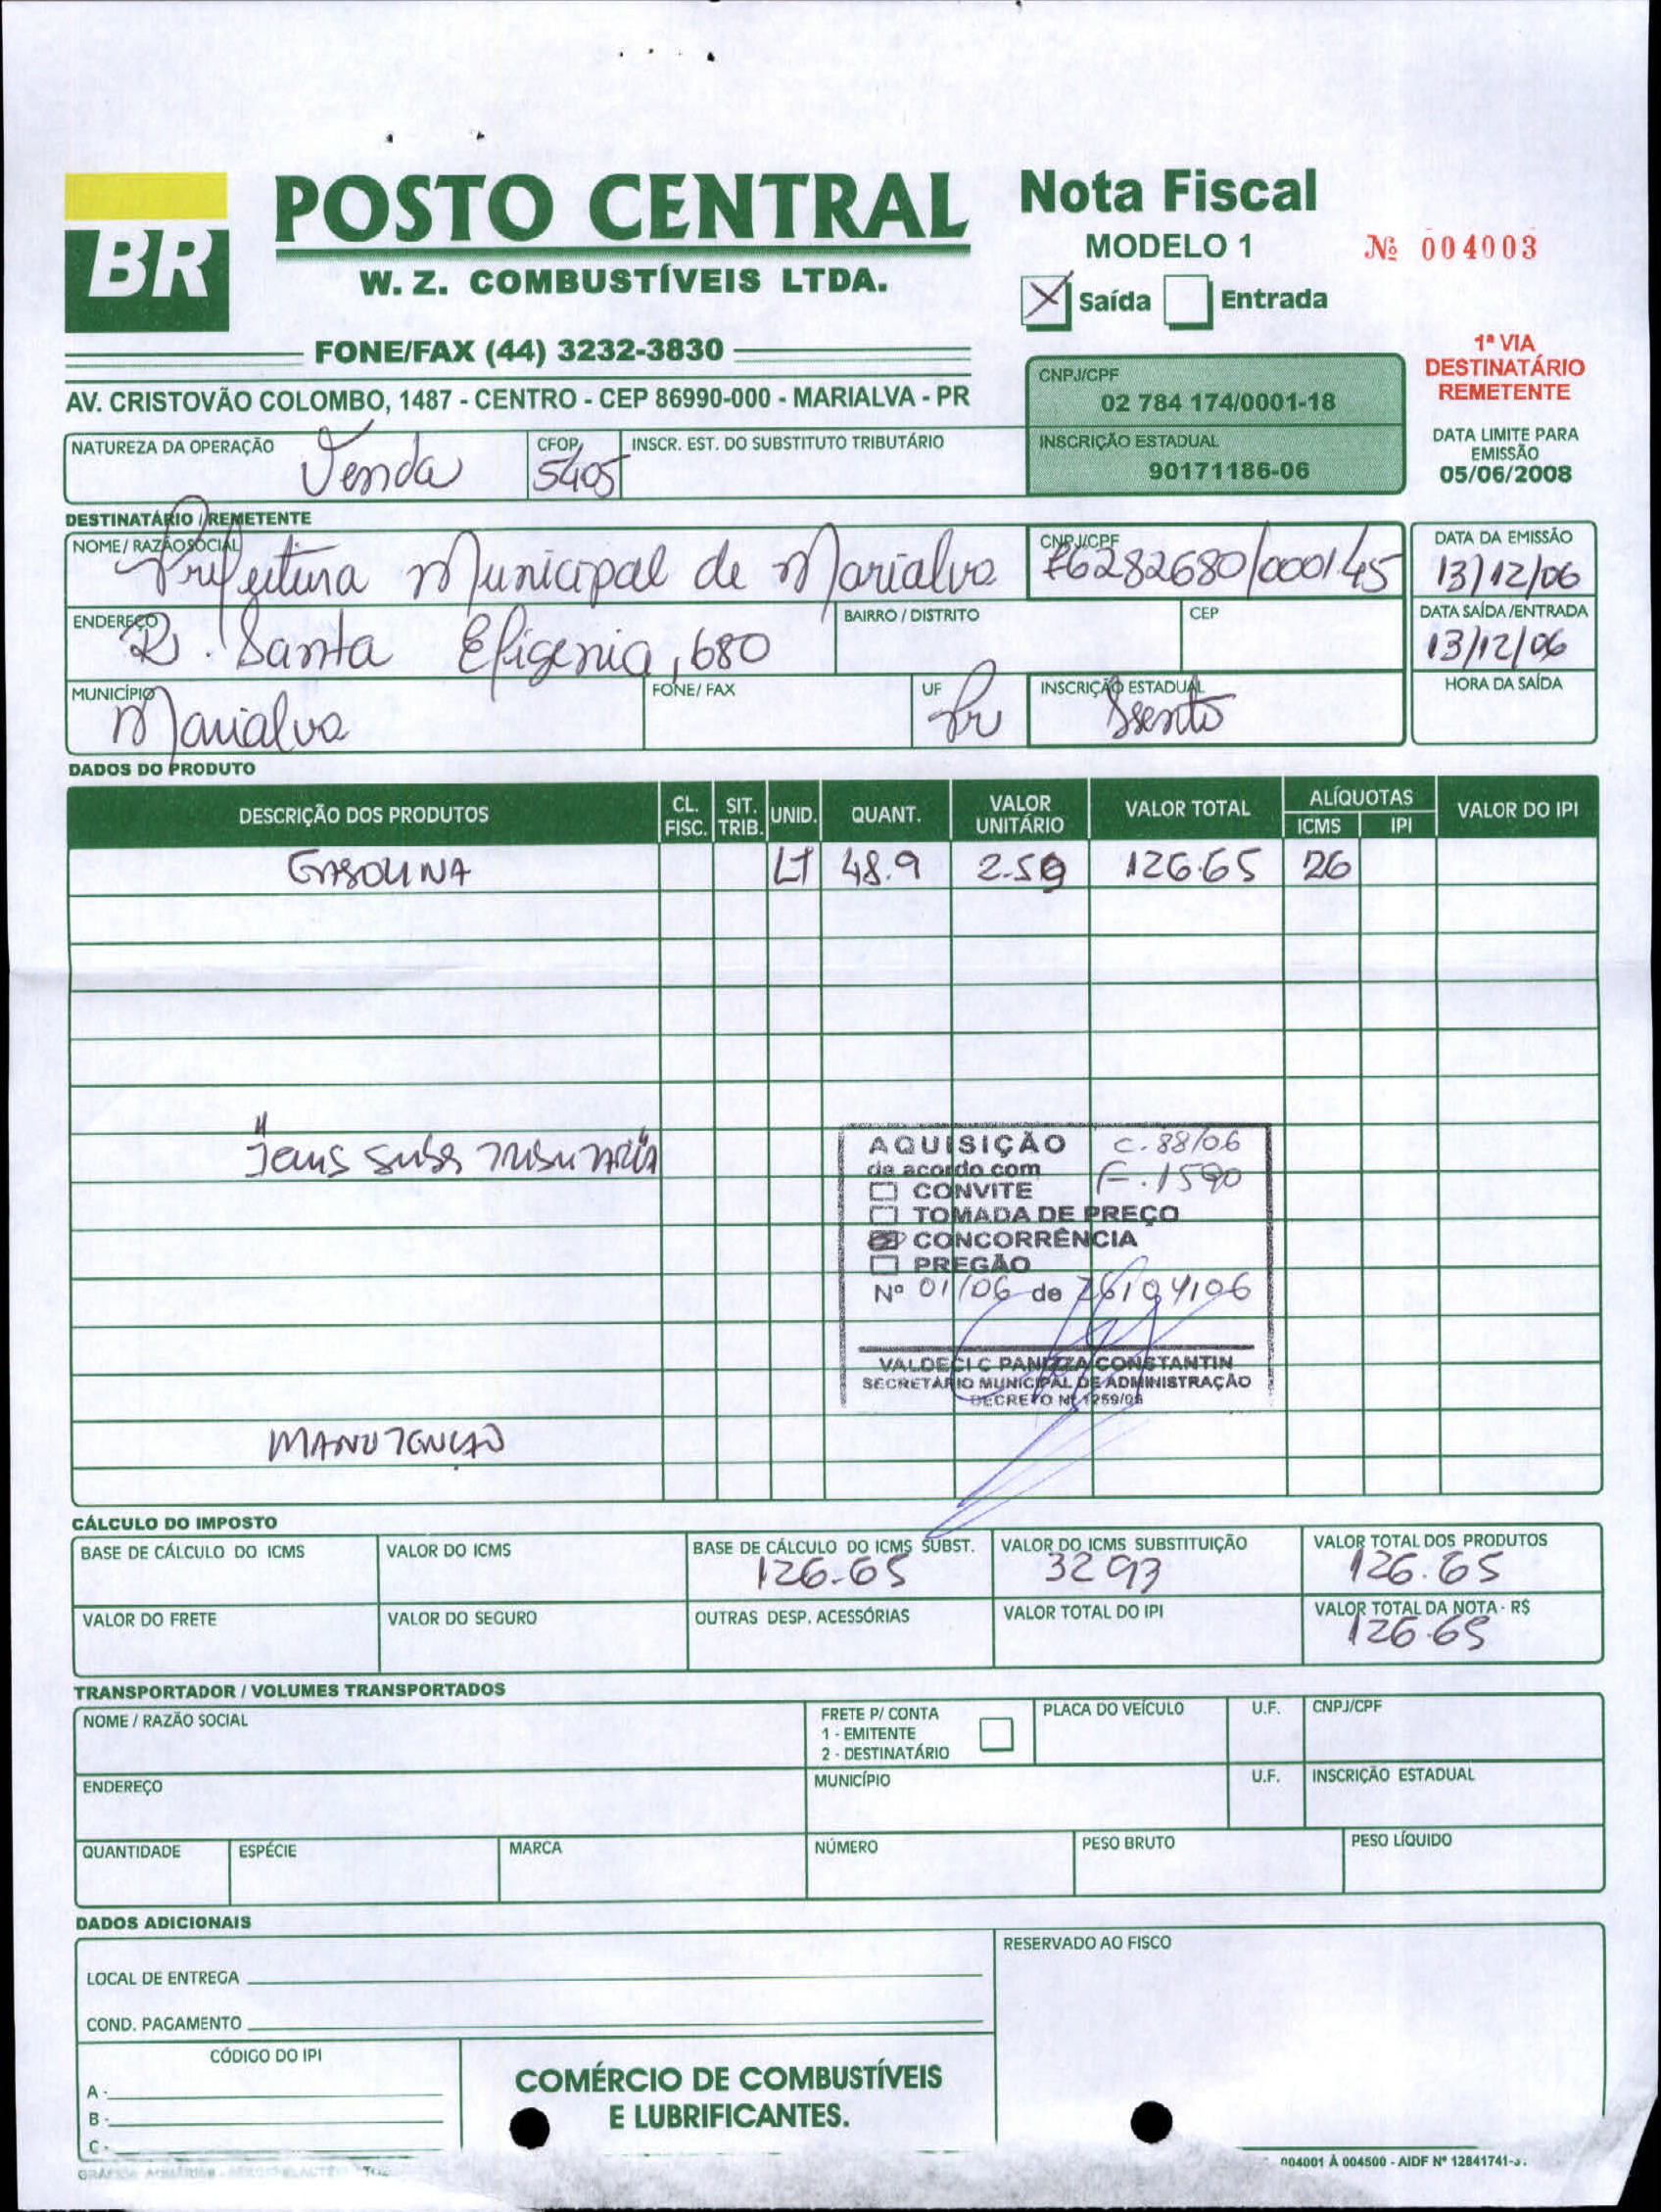 BR
POSTO CENTRAL
W. Z. COMBUSTÍVEIS LTDA.
FONE/FAX (44) 3232-3830
AV. CRISTOVÃO COLOMBO, 1487 - CENTRO - CEP 86990-000 - MARIALVA - PR
Nota Fiscal
MODELO 1
Nº 004003
X Saída Entrada
1ª VIA
DESTINATÁRIO
REMETENTE
CNPJ/CPF
02 784 174/0001-18
INSCRIÇÃO ESTADUAL
90171186-06
DATA LIMITE PARA
EMISSÃO
05/06/2008
NATUREZA DA OPERAÇÃO
Venda
CFOP
5405
INSCR. EST. DO SUBSTITUTO TRIBUTÁRIO
DESTINATÁRIO / REMETENTE
NOME / RAZÃO SOCIAL
Prefeitura Municipal de Marialva
CNPJ/CPF
76282680/000145
DATA DA EMISSÃO
13/12/06
ENDEREÇO
R. Santa Efigenia, 680
BAIRRO / DISTRITO
CEP
DATA SAÍDA/ENTRADA
13/12/06
MUNICÍPIO
Marialva
FONE/ FAX
UF
Pr
INSCRIÇÃO ESTADUAL
Isento
HORA DA SAÍDA
DADOS DO PRODUTO
DESCRIÇÃO DOS PRODUTOS CL. FISC. SIT. TRIB. UNID. QUANT. VALOR UNITÁRIO VALOR TOTAL ALÍQUOTAS ICMS IPI VALOR DO IPI
GASOLINA LT 48.9 2.59 126.65 26
AQUISIÇÃO C. 88/06
de acordo com F. 1590
CONVITE
TOMADA DE PREÇO
CONCORRÊNCIA
PREGÃO
Nº 01/06 de 26/04/06
VALDECI C PANIZZA CONSTANTIN
SECRETÁRIO MUNICIPAL DE ADMINISTRAÇÃO
DECRETO Nº
MANUTENCAO
CÁLCULO DO IMPOSTO
BASE DE CÁLCULO DO ICMS
VALOR DO ICMS
BASE DE CÁLCULO DO ICMS SUBST.
126.65
VALOR DO ICMS SUBSTITUIÇÃO
32 93
VALOR TOTAL DOS PRODUTOS
126.65
VALOR DO FRETE
VALOR DO SEGURO
OUTRAS DESP. ACESSÓRIAS
VALOR TOTAL DO IPI
VALOR TOTAL DA NOTA - R$
126.65
TRANSPORTADOR / VOLUMES TRANSPORTADOS
NOME / RAZÃO SOCIAL
FRETE P/ CONTA
1 - EMITENTE
2 - DESTINATÁRIO
PLACA DO VEÍCULO
U.F.
CNPJ/CPF
ENDEREÇO
MUNICÍPIO
U.F.
INSCRIÇÃO ESTADUAL
QUANTIDADE
ESPÉCIE
MARCA
NÚMERO
PESO BRUTO
PESO LÍQUIDO
DADOS ADICIONAIS
LOCAL DE ENTREGA
COND. PAGAMENTO
CÓDIGO DO IPI
A -
B -
C -
COMÉRCIO DE COMBUSTÍVEIS
E LUBRIFICANTES.
RESERVADO AO FISCO
004001 À 004500 - AIDF Nº